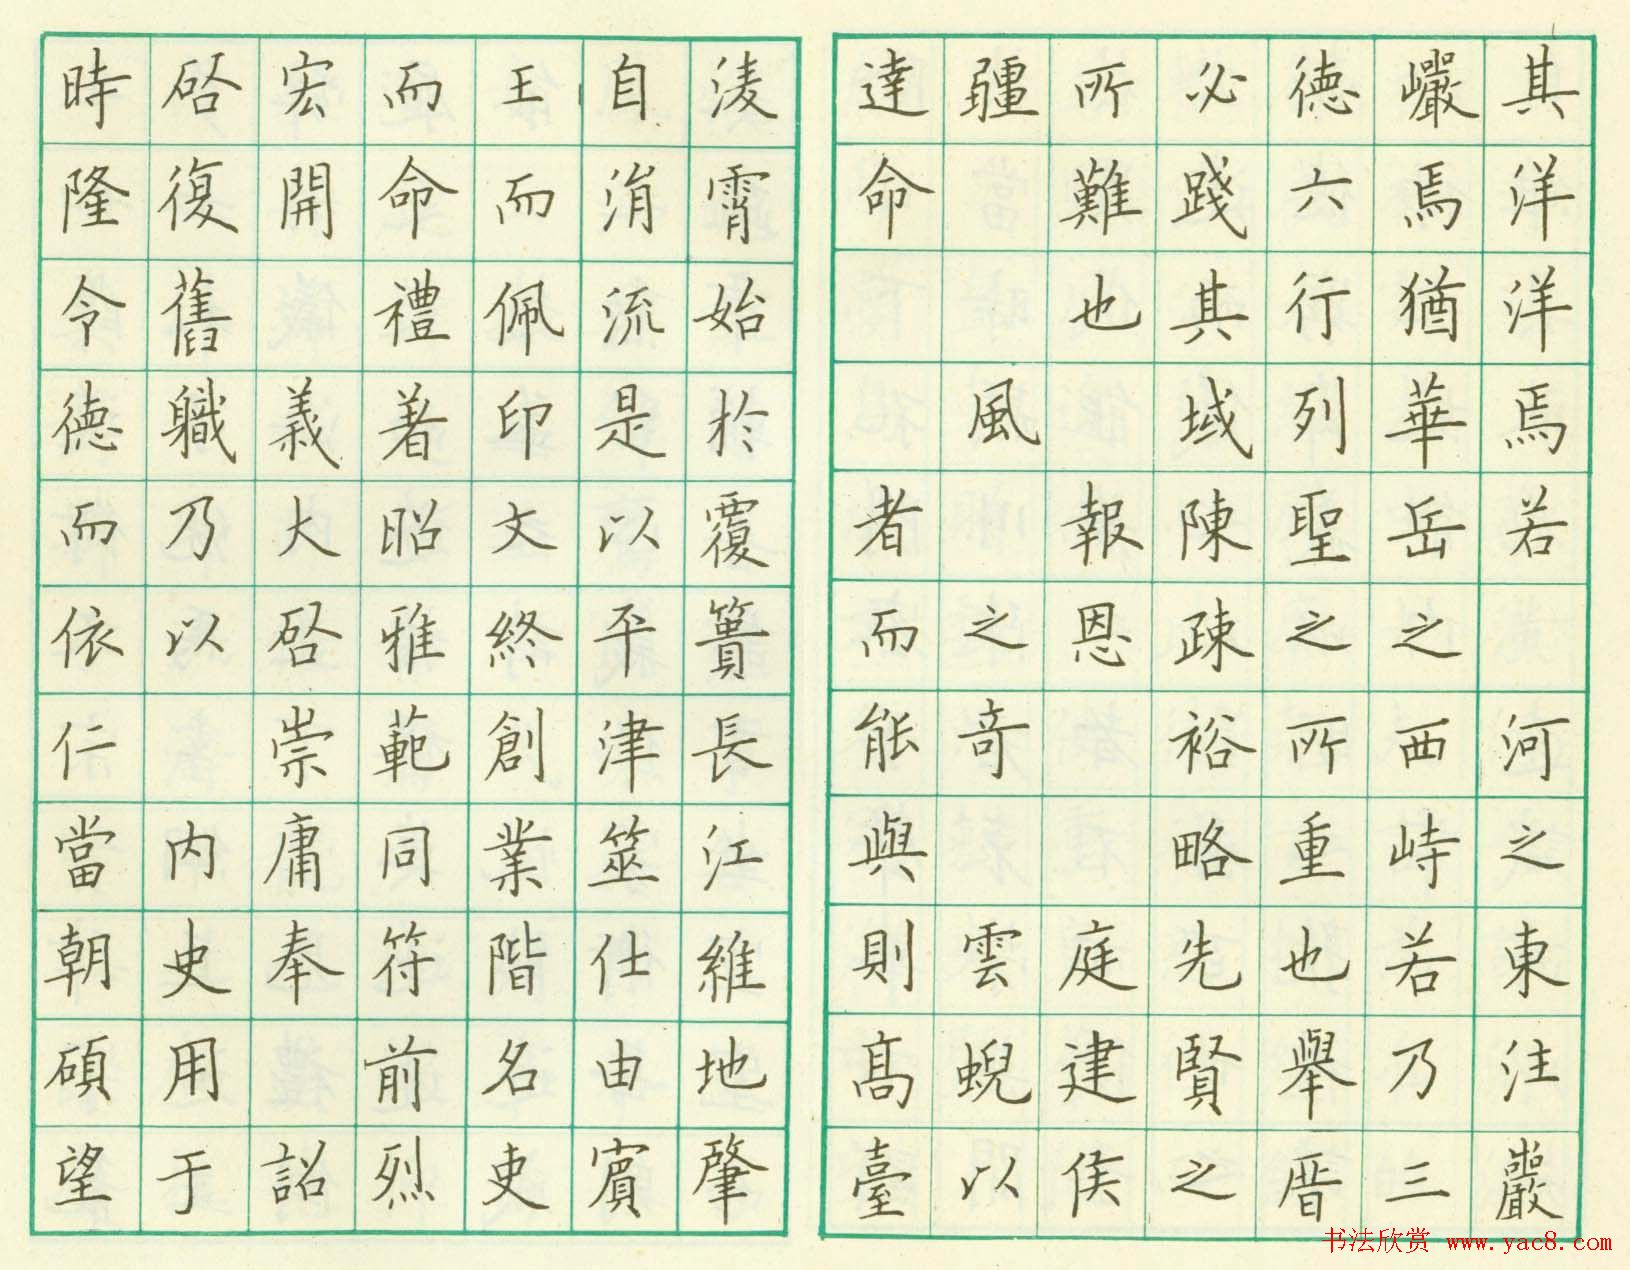 其洋洋焉若 河之東注巖
巖焉猶華岳之西峙若乃三
德六行列聖之所重也舉厝
必踐其域陳疎裕略先賢之
所難也 報恩  庭建侯
疆  風 之奇 雲蜺以
達命  者而能與則高臺
淩霄始於覆簣長江維地肇
自涓流是以平津筮仕由賓
王而佩印文終創業階名吏
而命禮著昭雅範同符前烈
宏開 義大啓崇庸奉 詔
啓復舊職乃以 内史用于
時隆令德而依仁當朝碩望
书法欣赏 www.yac8.com